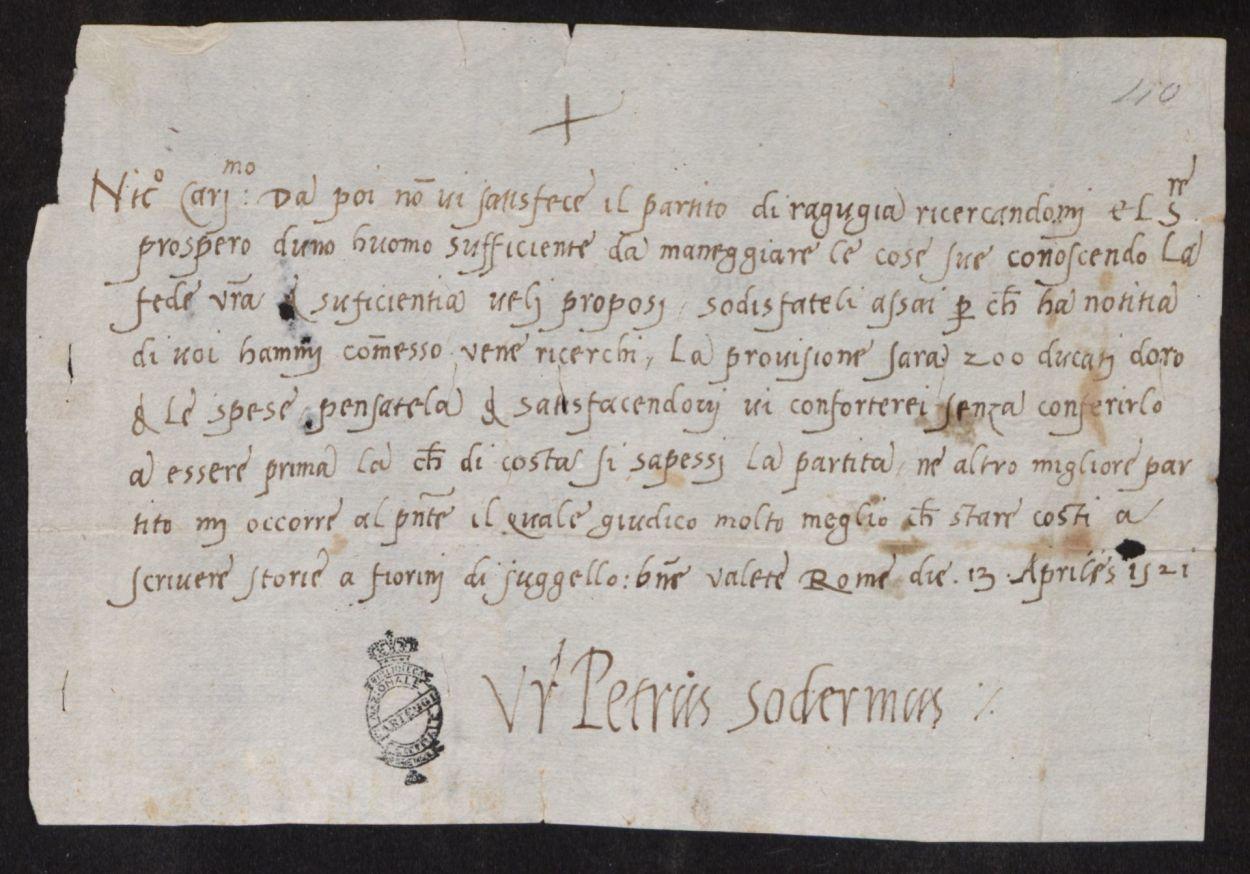 110
+
Nic° Cariᵐᵒ: Da poi nō vi satisfece il partito di ragugia ricercandomi el Sʳᵉ
prospero duno huomo sufficiente da maneggiare le cose sue conoscendo la
fede vr̄a & suficientia velj proposj, sodisfateli assai ꝑ ch̄ ha notitia
di voi hammj com̄esso vene ricerchi, La provisione sara 200 ducati doro
& le spese, pensatela & satisfacendovj vi conforterei senza conferirlo
a essere prima la ch̄ di costa si sapessi la partita, ne altro migliore par
tito mj occorre al pn̄te il quale giudico molto meglio ch̄ stare costi a
scrivere storie a fiorinj di suggello: bn̄e valete Rome die. 13. Aprilis 1521
Vr̄ Petrus Soderinus
BIBLIOTECA NAZIONALE CENTRALE
CARTEGGI